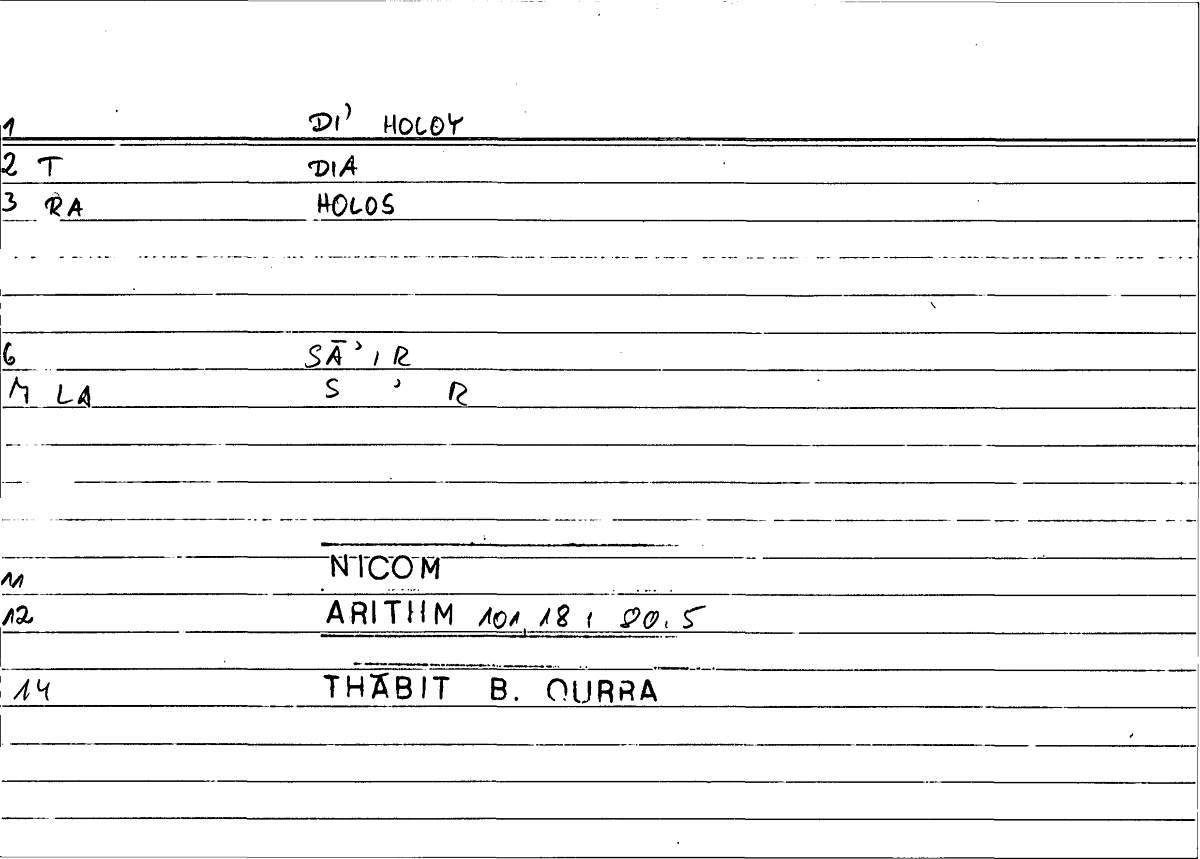 1 DI' HOLOY
2 T DIA
3 RA HOLOS
6 SĀ'IR
M LA S ' R
11 NICOM
12 ARITHM 101,18 ; 90.5
14 THĀBIT B. QURRA